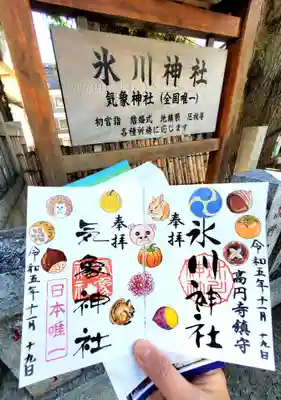 氷川神社
気象神社(全国唯一)
初宮詣 結婚式 地鎮祭 厄祓等
各種祈祷に応じます
奉拝
氷川神社
高円寺鎮守
令和五年十一月十九日
奉拝
気象神社
日本唯一
令和五年十一月十九日